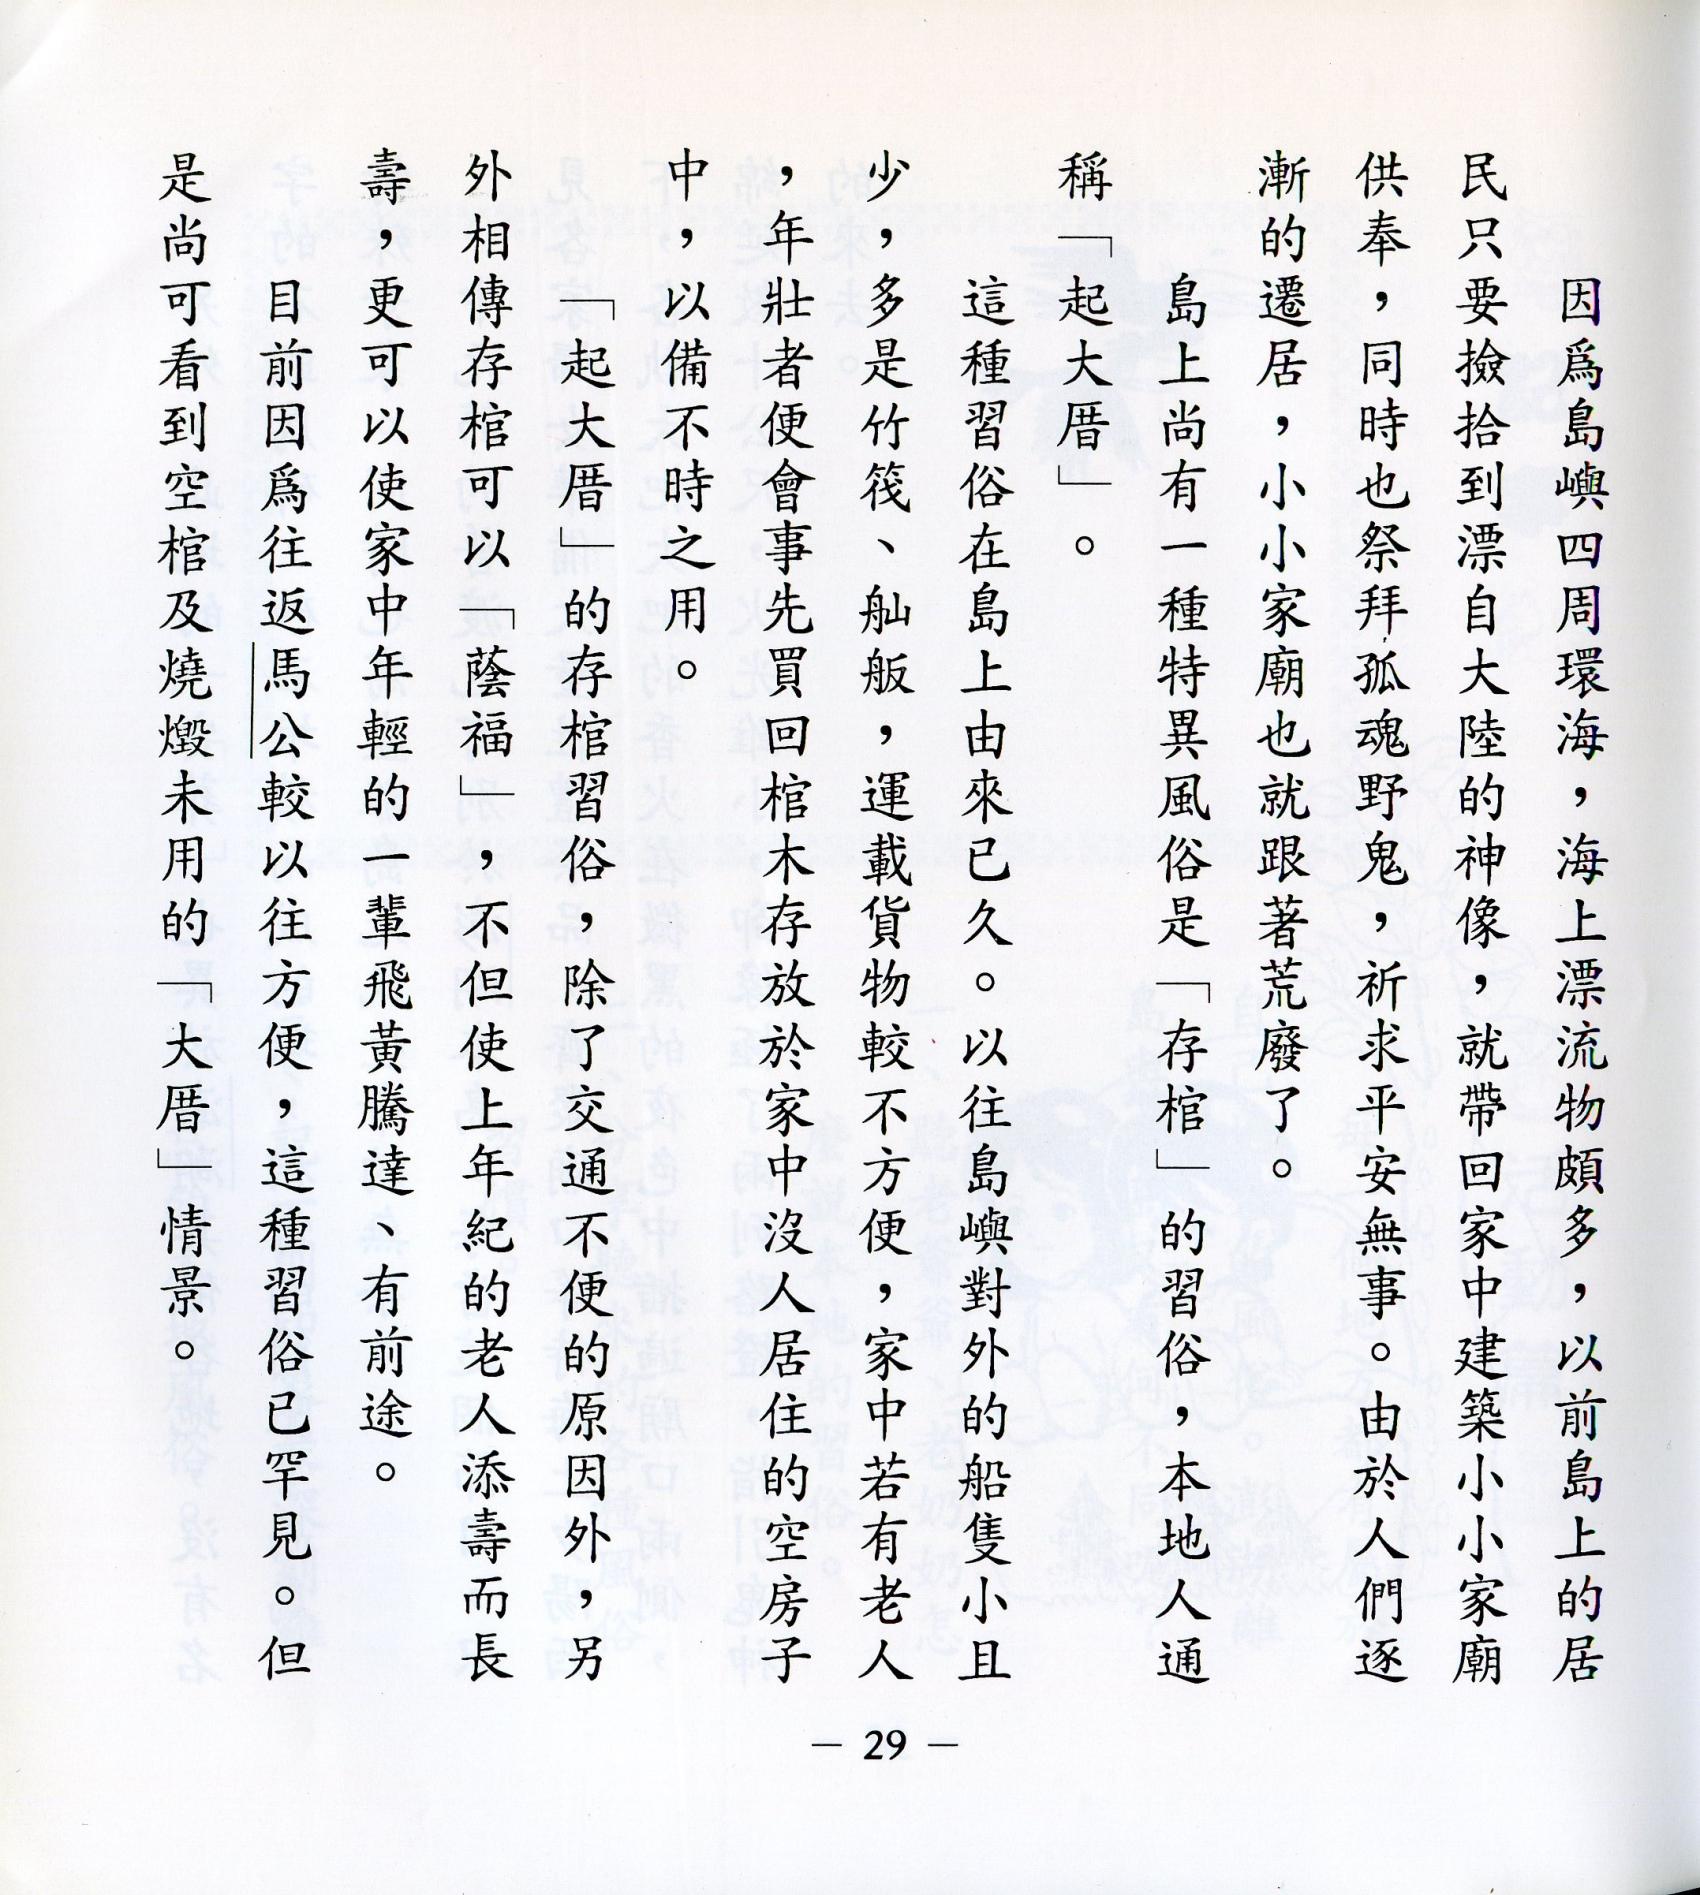 因爲島嶼四周環海，海上漂流物頗多，以前島上的居
民只要撿拾到漂自大陸的神像，就帶回家中建築小小家廟
供奉，同時也祭拜孤魂野鬼，祈求平安無事。由於人們逐
漸的遷居，小小家廟也就跟著荒廢了。
島上尚有一種特異風俗是「存棺」的習俗，本地人通
稱「起大厝」。
這種習俗在島上由來已久。以往島嶼對外的船隻小且
少，多是竹筏、舢舨，運載貨物較不方便，家中若有老人
，年壯者便會事先買回棺木存放於家中沒人居住的空房子
中，以備不時之用。
「起大厝」的存棺習俗，除了交通不便的原因外，另
外相傳存棺可以「蔭福」，不但使上年紀的老人添壽而長
壽，更可以使家中年輕的一輩飛黃騰達、有前途。
目前因爲往返馬公較以往方便，這種習俗已罕見。但
是尚可看到空棺及燒燬未用的「大厝」情景。
— 29 —